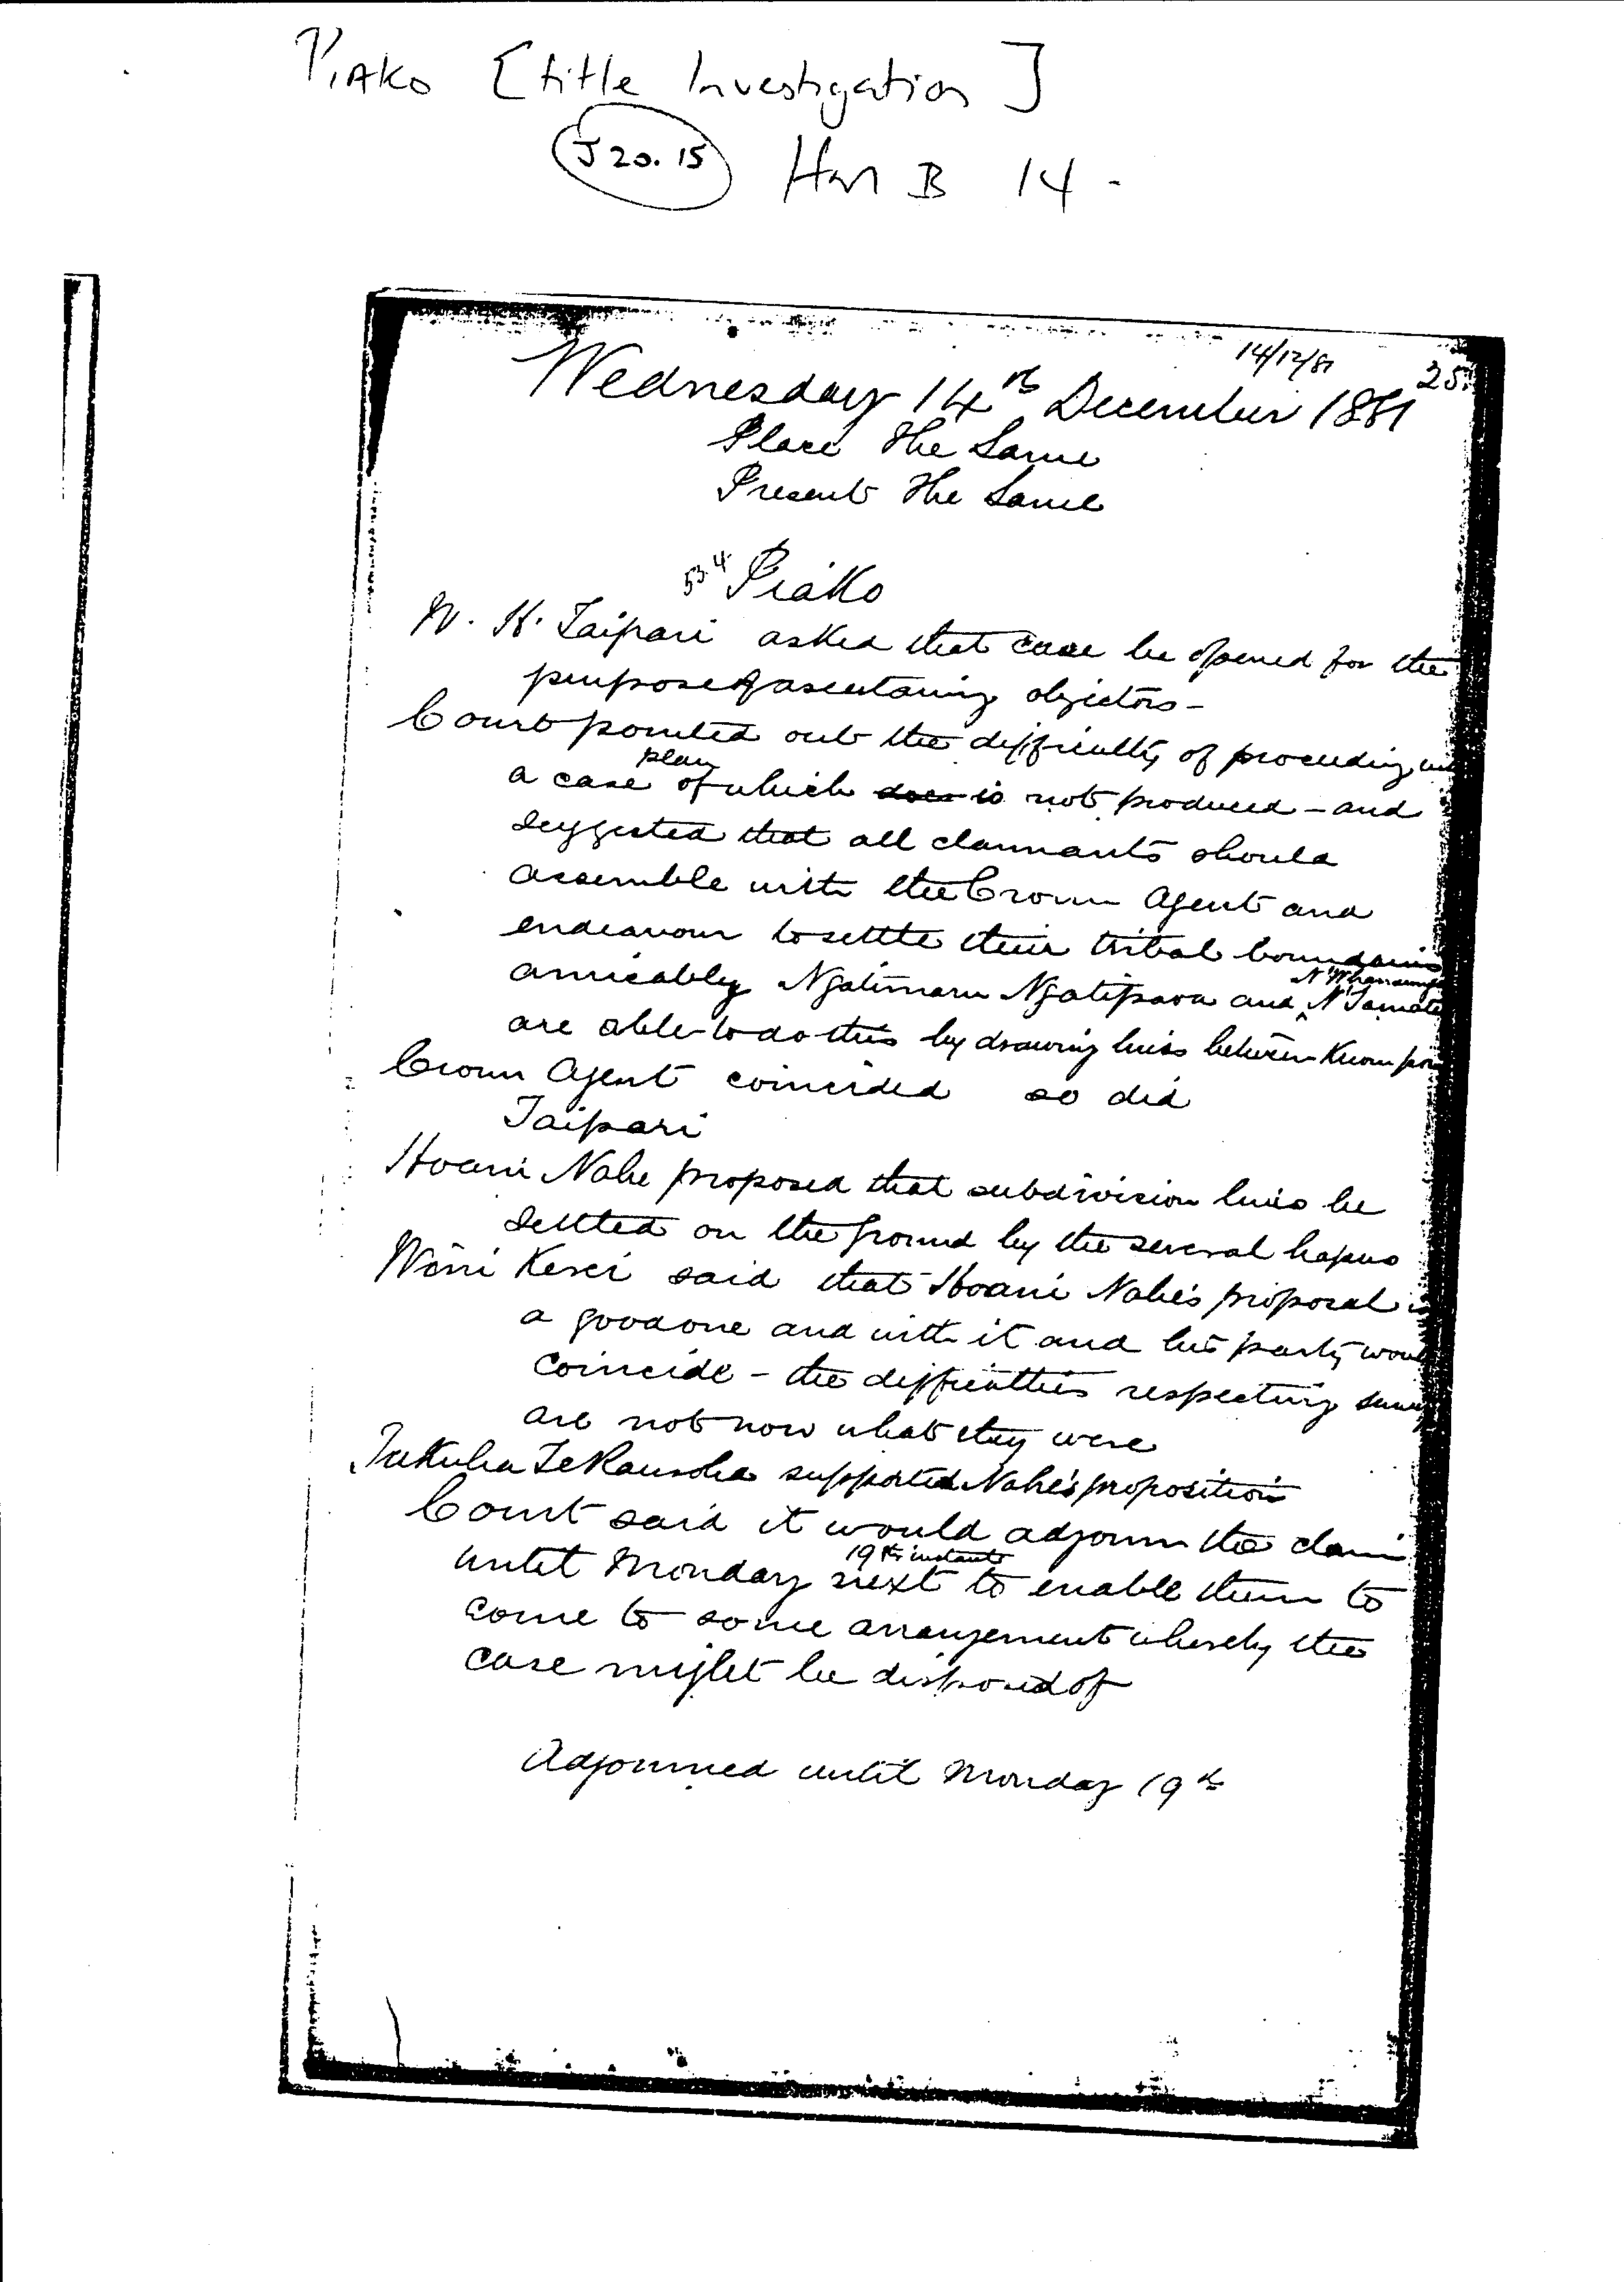 PIAKO [title Investigation]
J 20.15 Hm B 14 -
14/12/81 25
Wednesday 14th December 1881
Place The Same
Present The Same
534 Piako
W. H. Taipari asked that case be opened for the
purpose of ascertaining objectors -
Court pointed out the difficulty of proceeding
plan
a case of which does is not produced - and
suggested that all claimants should
assemble with the Crown Agent and
endeavour to settle their tribal boundaries
N'Whanaunga
amicably Ngatimaru Ngatipaoa and N'Tamate
are able to do this by drawing lines between known
Crown Agent coincided so did
Taipari
Hoani Nahe proposed that subdivision lines be
settled on the ground by the several hapus
Wini Kerei said that Hoani Nahe's proposal
a good one and with it and his party would
coincide - the difficulties respecting survey
are not now what they were
Tukuha Te supported Nahe's proposition
Court said it would adjourn the claim
19th instant
until Monday next to enable them to
come to some arrangement whereby the
case might be disposed of
Adjourned until Monday 19th